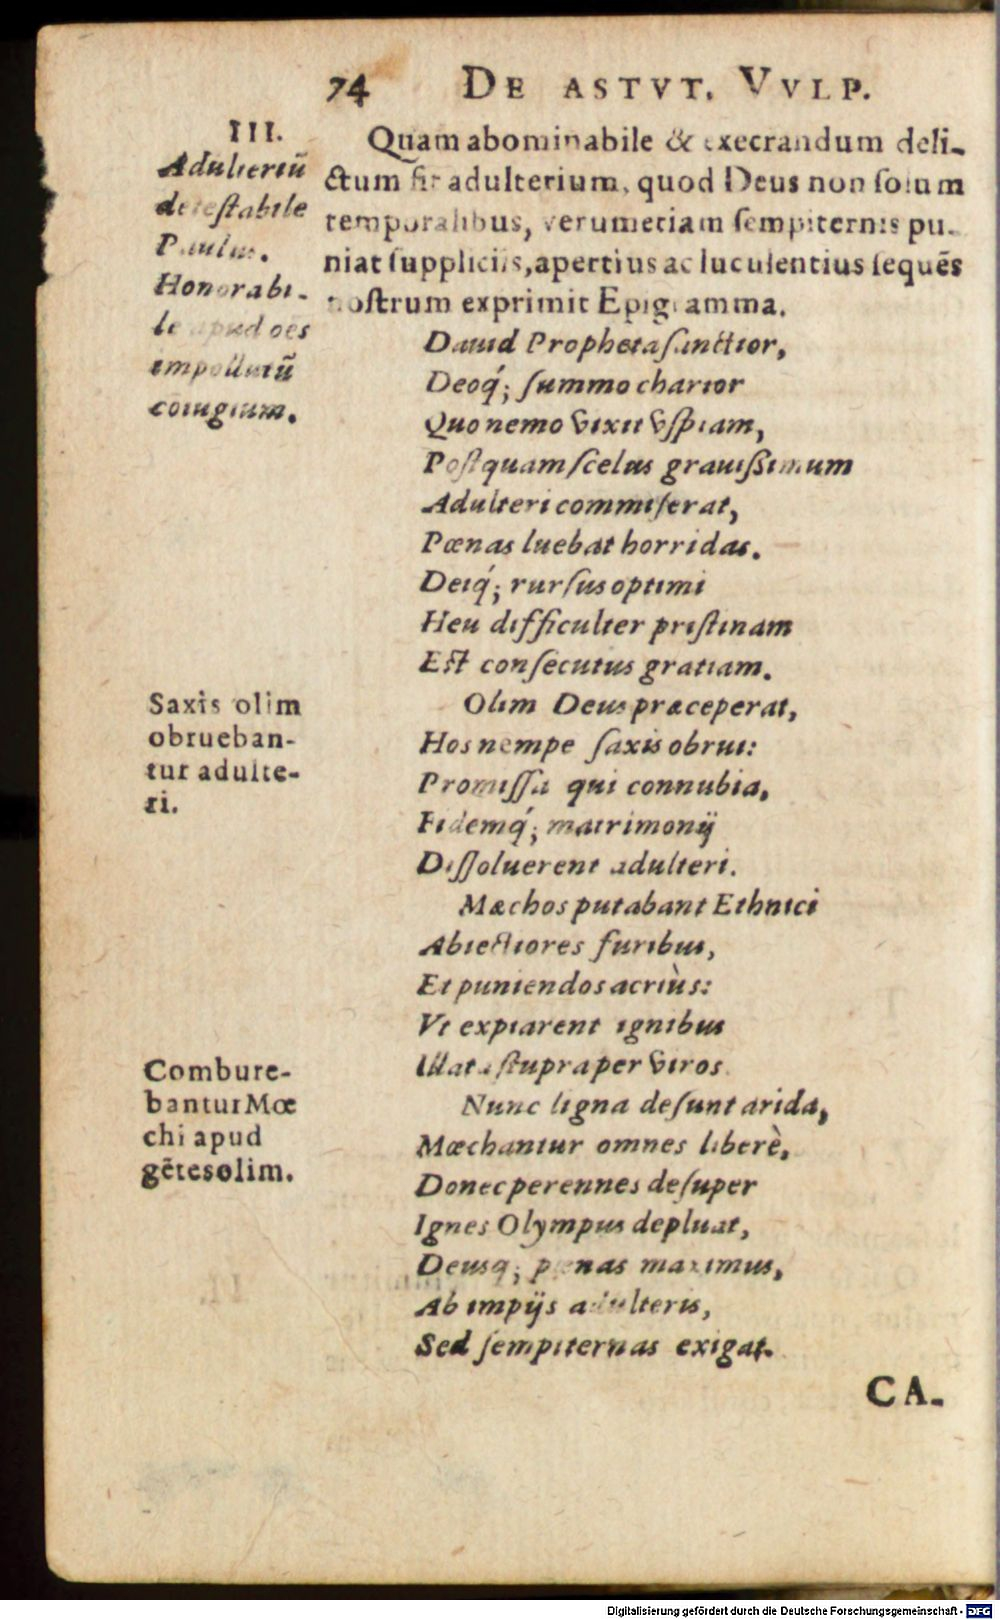 74 DE ASTVT. VVLP.
III.
Adulteriũ
detestabile
Paulus.
Honorabi-
le apud oẽs
impollutũ
coiugium.
Quam abominabile & execrandum deli-
ctum sit adulterium, quod Deus non solum
temporalibus, verumetiam sempiternis pu-
niat suppliciis, apertius ac luculentius sequẽs
nostrum exprimit Epigramma.
Dauid Propheta sanctior,
Deoq́; summo charior
Quo nemo vixit vspiam,
Postquam scelus grauissimum
Adulteri commiserat,
Pœnas luebat horridas.
Deiq́; rursus optimi
Heu difficulter pristinam
Est consecutus gratiam.
Saxis olim
obrueban-
tur adulte-
ri.
Olim Deus præceperat,
Hos nempe saxis obrui:
Promissa qui connubia,
Fidemq́; matrimonij
Dissoluerent adulteri.
Mæchos putabant Ethnici
Abiectiores furibus,
Et puniendos acriùs:
Vt expiarent ignibus
Illata stupra per viros.
Combure-
bantur Mœ
chi apud
gẽtes olim.
Nunc ligna desunt arida,
Mœchantur omnes liberè,
Donec perennes desuper
Ignes Olympus depluat,
Deusq; pœnas maximus,
Ab impijs adulteris,
Sed sempiternas exigat.
CA-
Digitalisierung gefördert durch die Deutsche Forschungsgemeinschaft - DFG